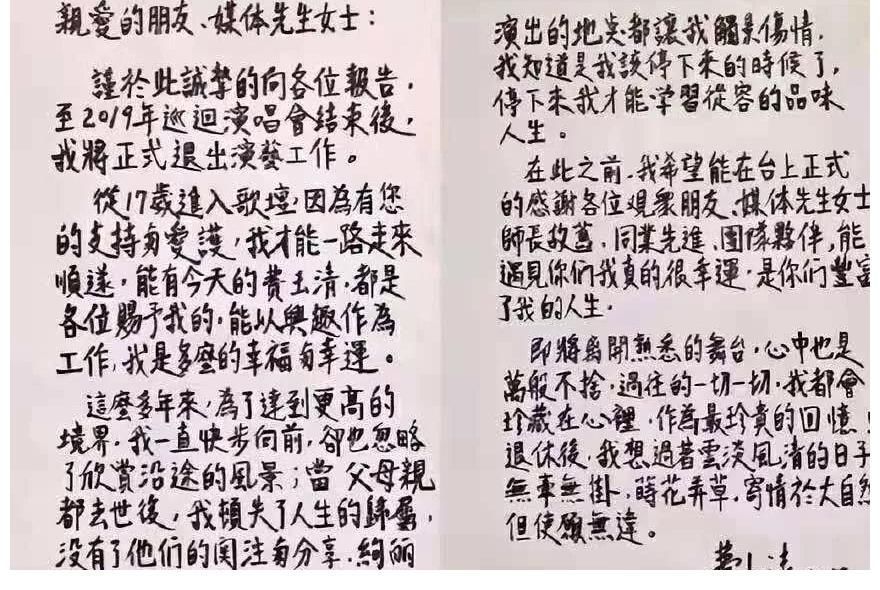 親愛的朋友、媒体先生女士：
謹於此誠摯的向各位報告，
至2019年巡迴演唱會結束後，
我將正式退出演藝工作。
從17歲進入歌壇，因為有您
的支持与愛護，我才能一路走來
順遂，能有今天的費玉清，都是
各位賜予我的，能以興趣作為
工作，我是多麼的幸福与幸運。
這麼多年來，為了達到更高的
境界，我一直快步向前，卻也忽略
了欣賞沿途的風景；當父母親
都去世後，我頓失了人生的歸屬，
沒有了他們的関注与分享，絢麗
演出的地点都讓我觸景傷情，
我知道是我該停下來的時候了，
停下來我才能学習從容的品味
人生。
在此之前，我希望能在台上正式
的感謝各位观衆朋友、媒体先生女士
師長故舊、同業先進、團隊夥伴，能
遇見你們我真的很幸運，是你們豐富
了我的人生。
即將离開熟悉的舞台，心中也是
萬般不捨，過往的一切一切，我都會
珍藏在心裡，作為最珍貴的回憶！
退休後，我想過著雲淡風清的日子
無牽無掛，蒔花弄草，寄情於大自然
但使願無違。